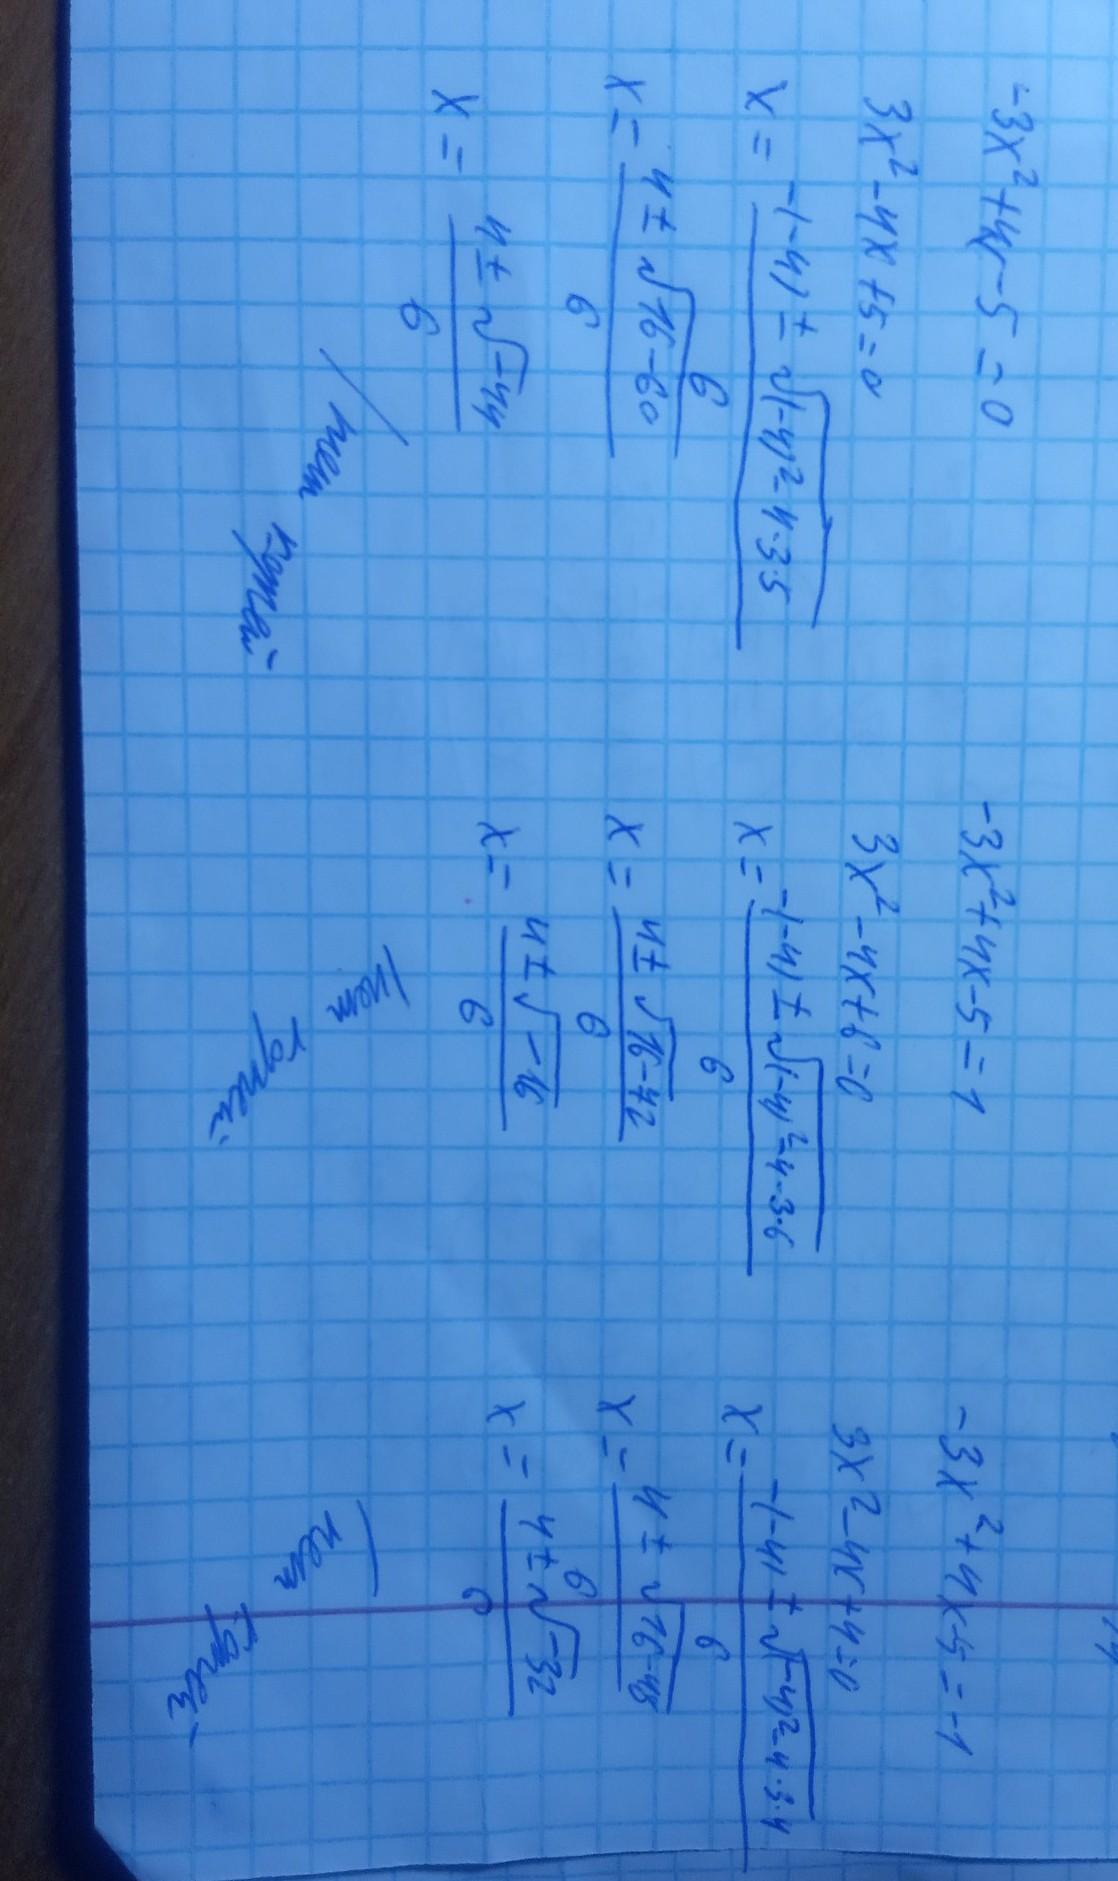 -3x²+4x-5=0
3x²-4x+5=0
x = -(-4) ± √(-4)²-4·3·5
6
x = 4 ± √16-60
6
x = 4 ± √-44
6
нет корней
-3x²+4x-5=1
3x²-4x+6=0
x = -(-4) ± √(-4)²-4·3·6
6
x = 4 ± √16-72
6
x = 4 ± √-16
6
нет корней
-3x²+4x-5=-1
3x²-4x+4=0
x = -(-4) ± √(-4)²-4·3·4
6
x = 4 ± √16-48
6
x = 4 ± √-32
6
нет корней